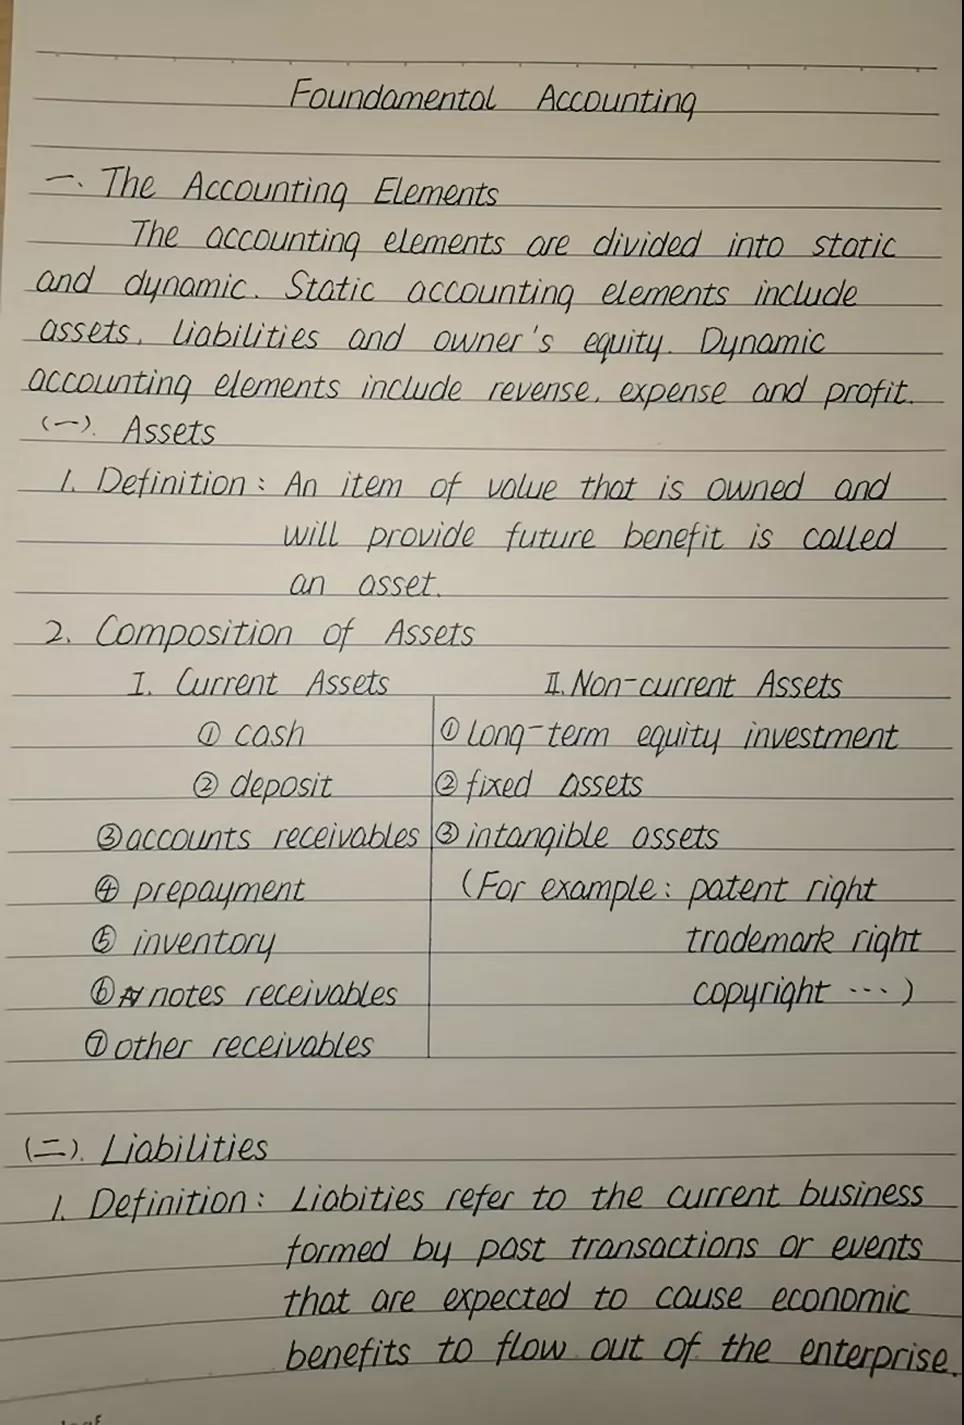 Foundamental Accounting
一、The Accounting Elements
The accounting elements are divided into static
and dynamic. Static accounting elements include
assets, liabilities and owner's equity. Dynamic
accounting elements include revense, expense and profit.
(一). Assets
1. Definition: An item of value that is owned and
will provide future benefit is called
an asset.
2. Composition of Assets
I. Current Assets
① cash
② deposit
③ accounts receivables
④ prepayment
⑤ inventory
⑥ notes receivables
⑦ other receivables
II. Non-current Assets
① Long-term equity investment
② fixed assets
③ intangible assets
(For example: patent right
trademark right
copyright ...)
(二). Liabilities
1. Definition: Liabities refer to the current business
formed by past transactions or events
that are expected to cause economic
benefits to flow out of the enterprise.